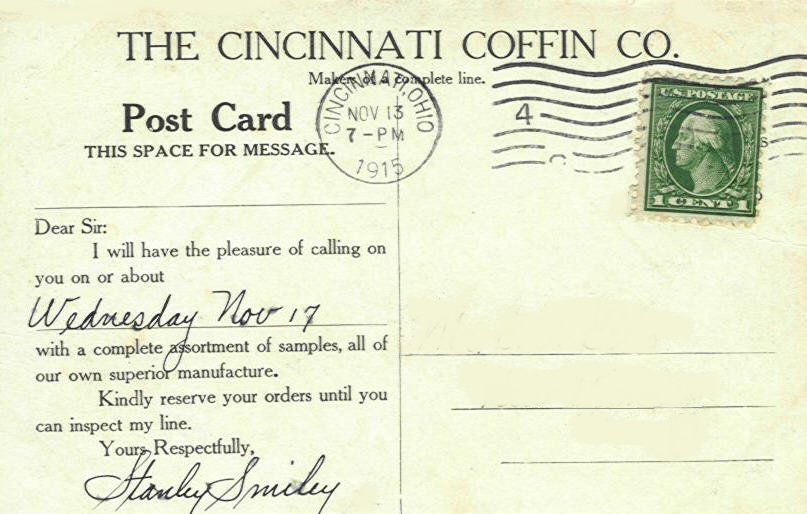 THE CINCINNATI COFFIN CO.
Makers of a complete line.
Post Card
THIS SPACE FOR MESSAGE.
CINCINNATI, OHIO
NOV 13
7-PM
1915
4
U.S. POSTAGE
1 CENT 1
Dear Sir:
I will have the pleasure of calling on
you on or about
Wednesday Nov 17
with a complete assortment of samples, all of
our own superior manufacture.
Kindly reserve your orders until you
can inspect my line.
Yours Respectfully,
Stanley Smiley